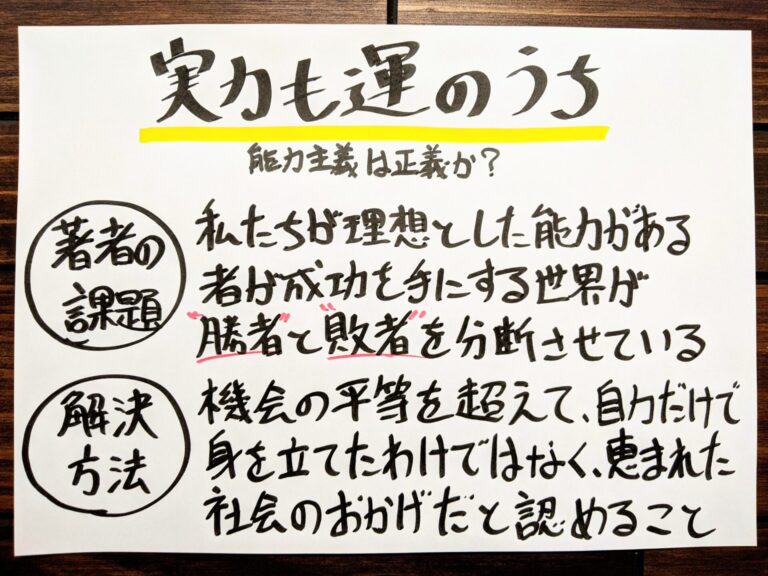 実力も運のうち
能力主義は正義か?
著者の
課題
私たちが理想とした能力がある
者が成功を手にする世界が
"勝者"と"敗者"を分断させている
解決
方法
機会の平等を超えて、自力だけで
身を立てたわけではなく、恵まれた
社会のおかげだと認めること